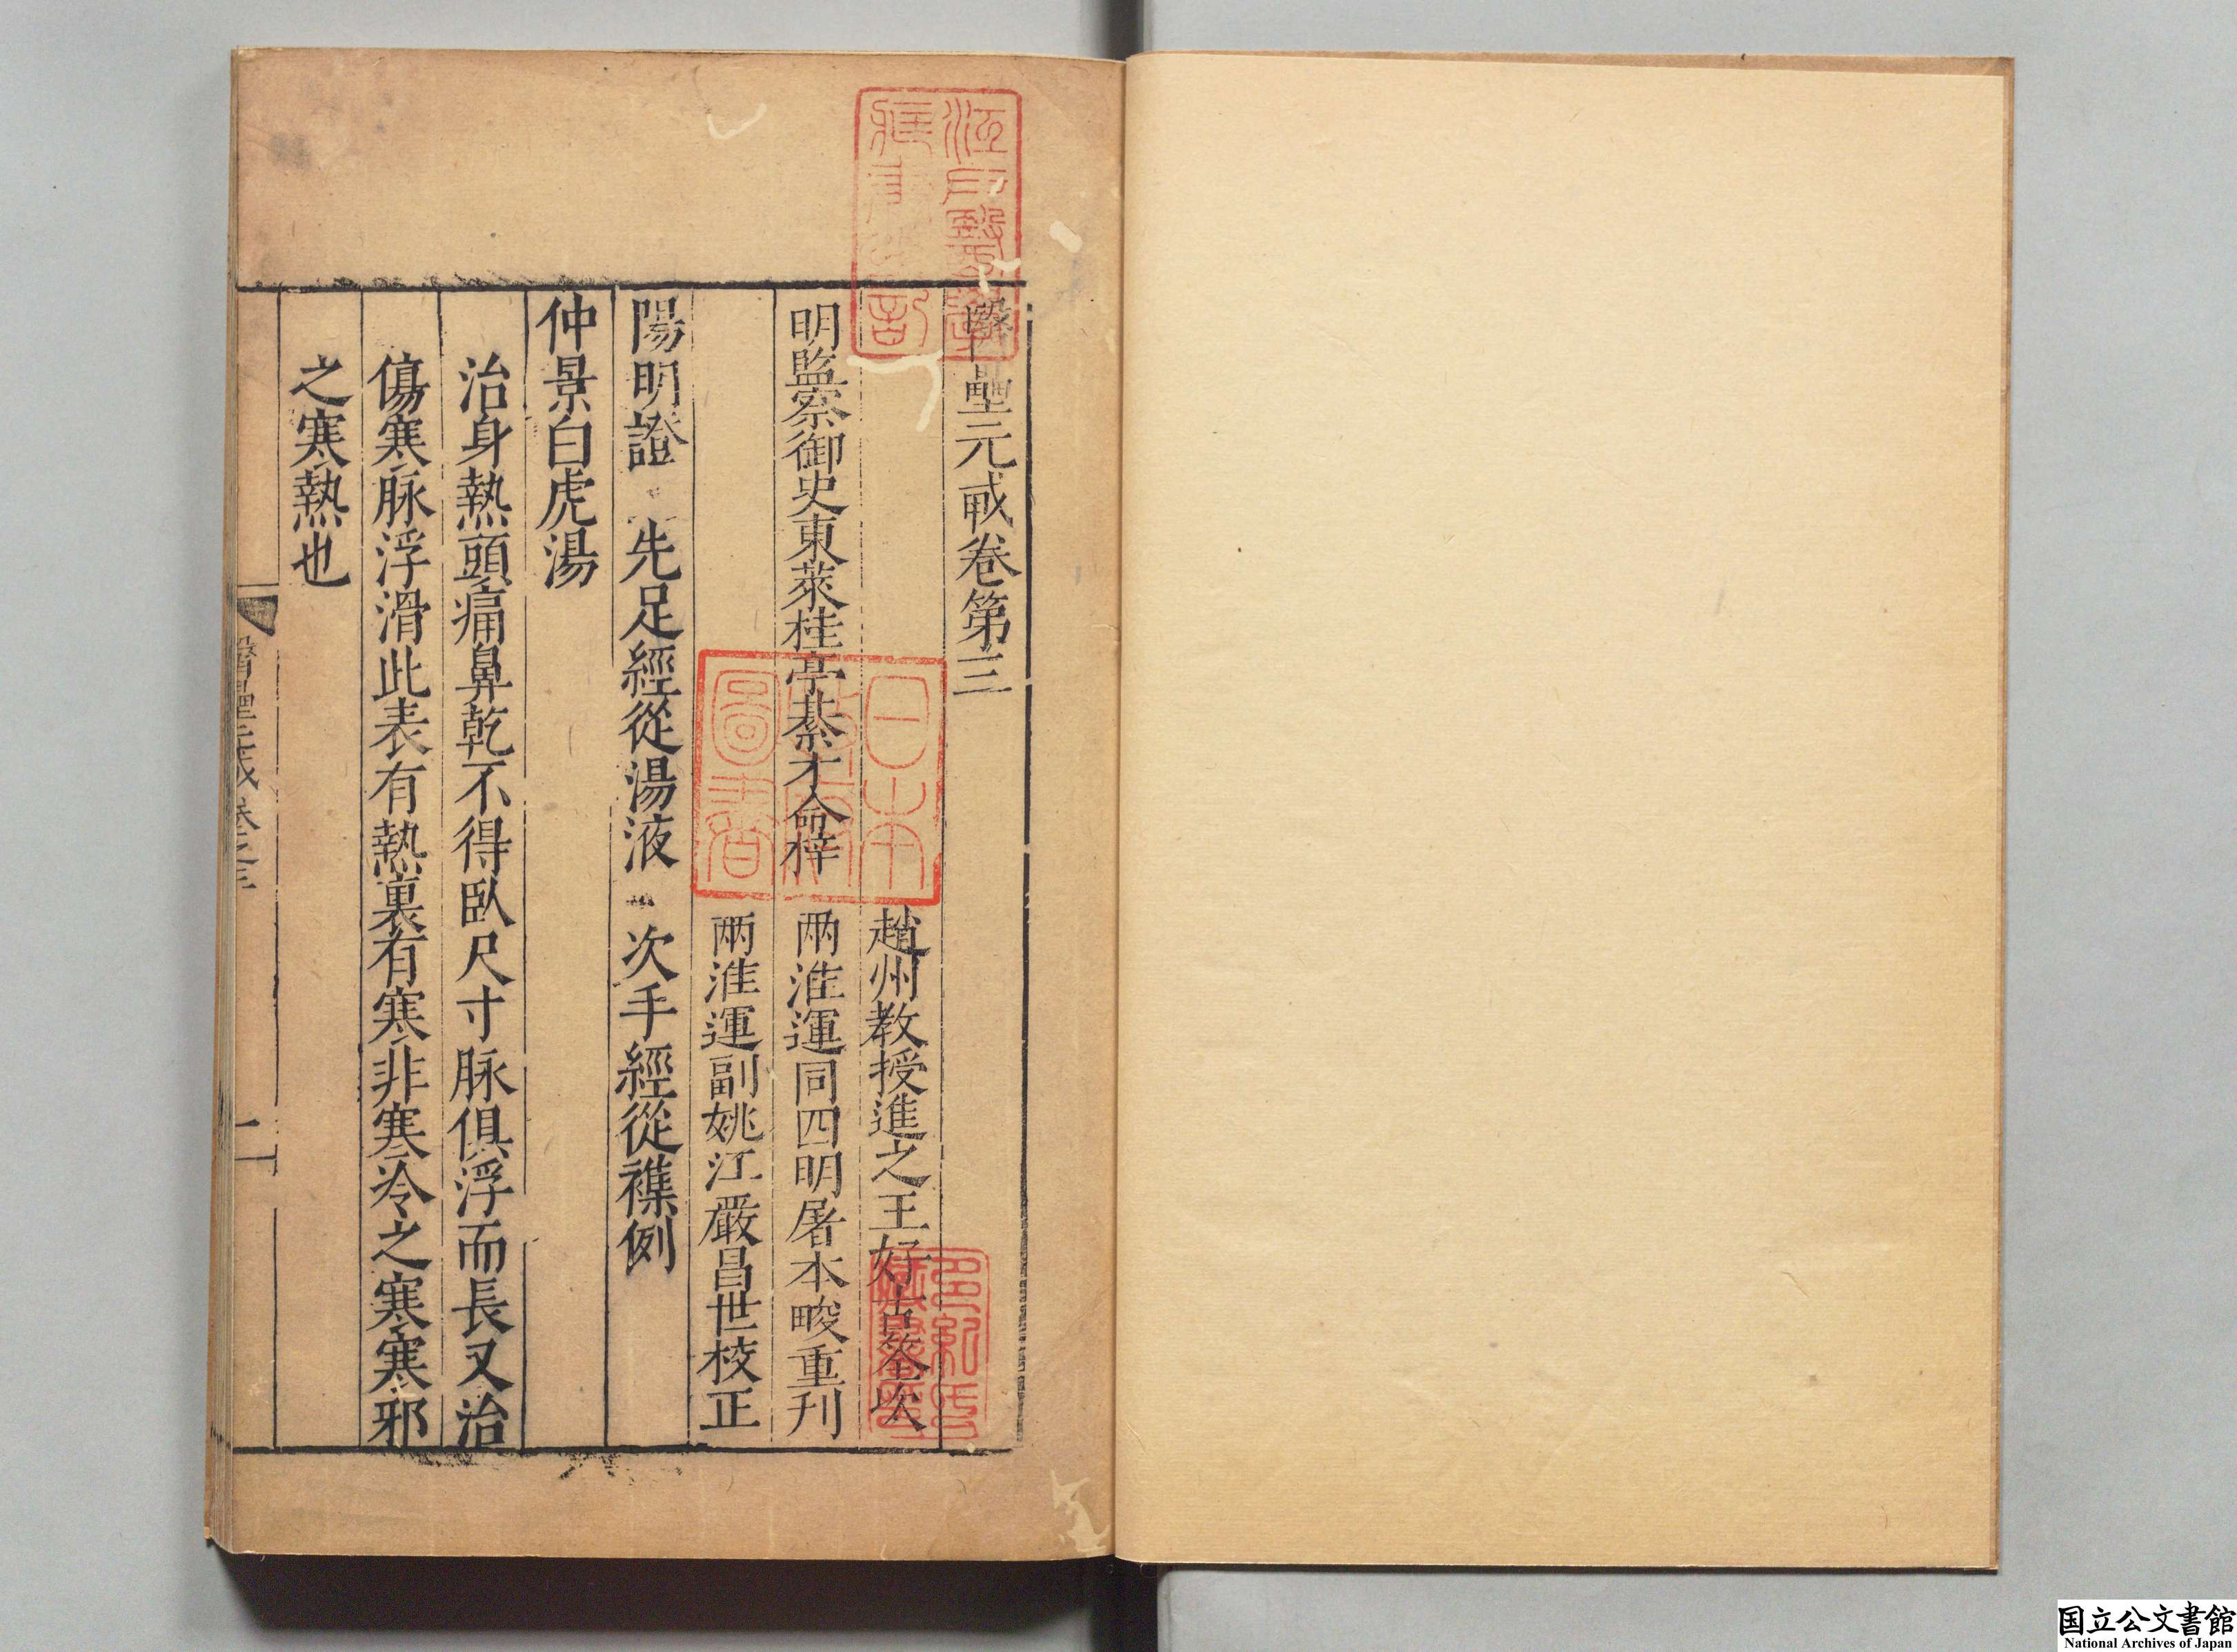 醫壘元戎卷第三
趙州教授進之王好古筌次
明監察御史東萊桂亭綦才命梓 兩淮運同四明屠本畯重刊
兩淮運副姚江嚴昌世校正
陽明證 先足經從湯液 次手經從襍例
仲景白虎湯
治身熱頭痛鼻乾不得臥尺寸脉俱浮而長又治
傷寒脉浮滑此表有熱裏有寒非寒冷之寒寒邪
之寒熱也
醫壘元戎卷之三
一
江戶醫學
日本
圖書
多紀氏
国立公文書館
National Archives of Japan